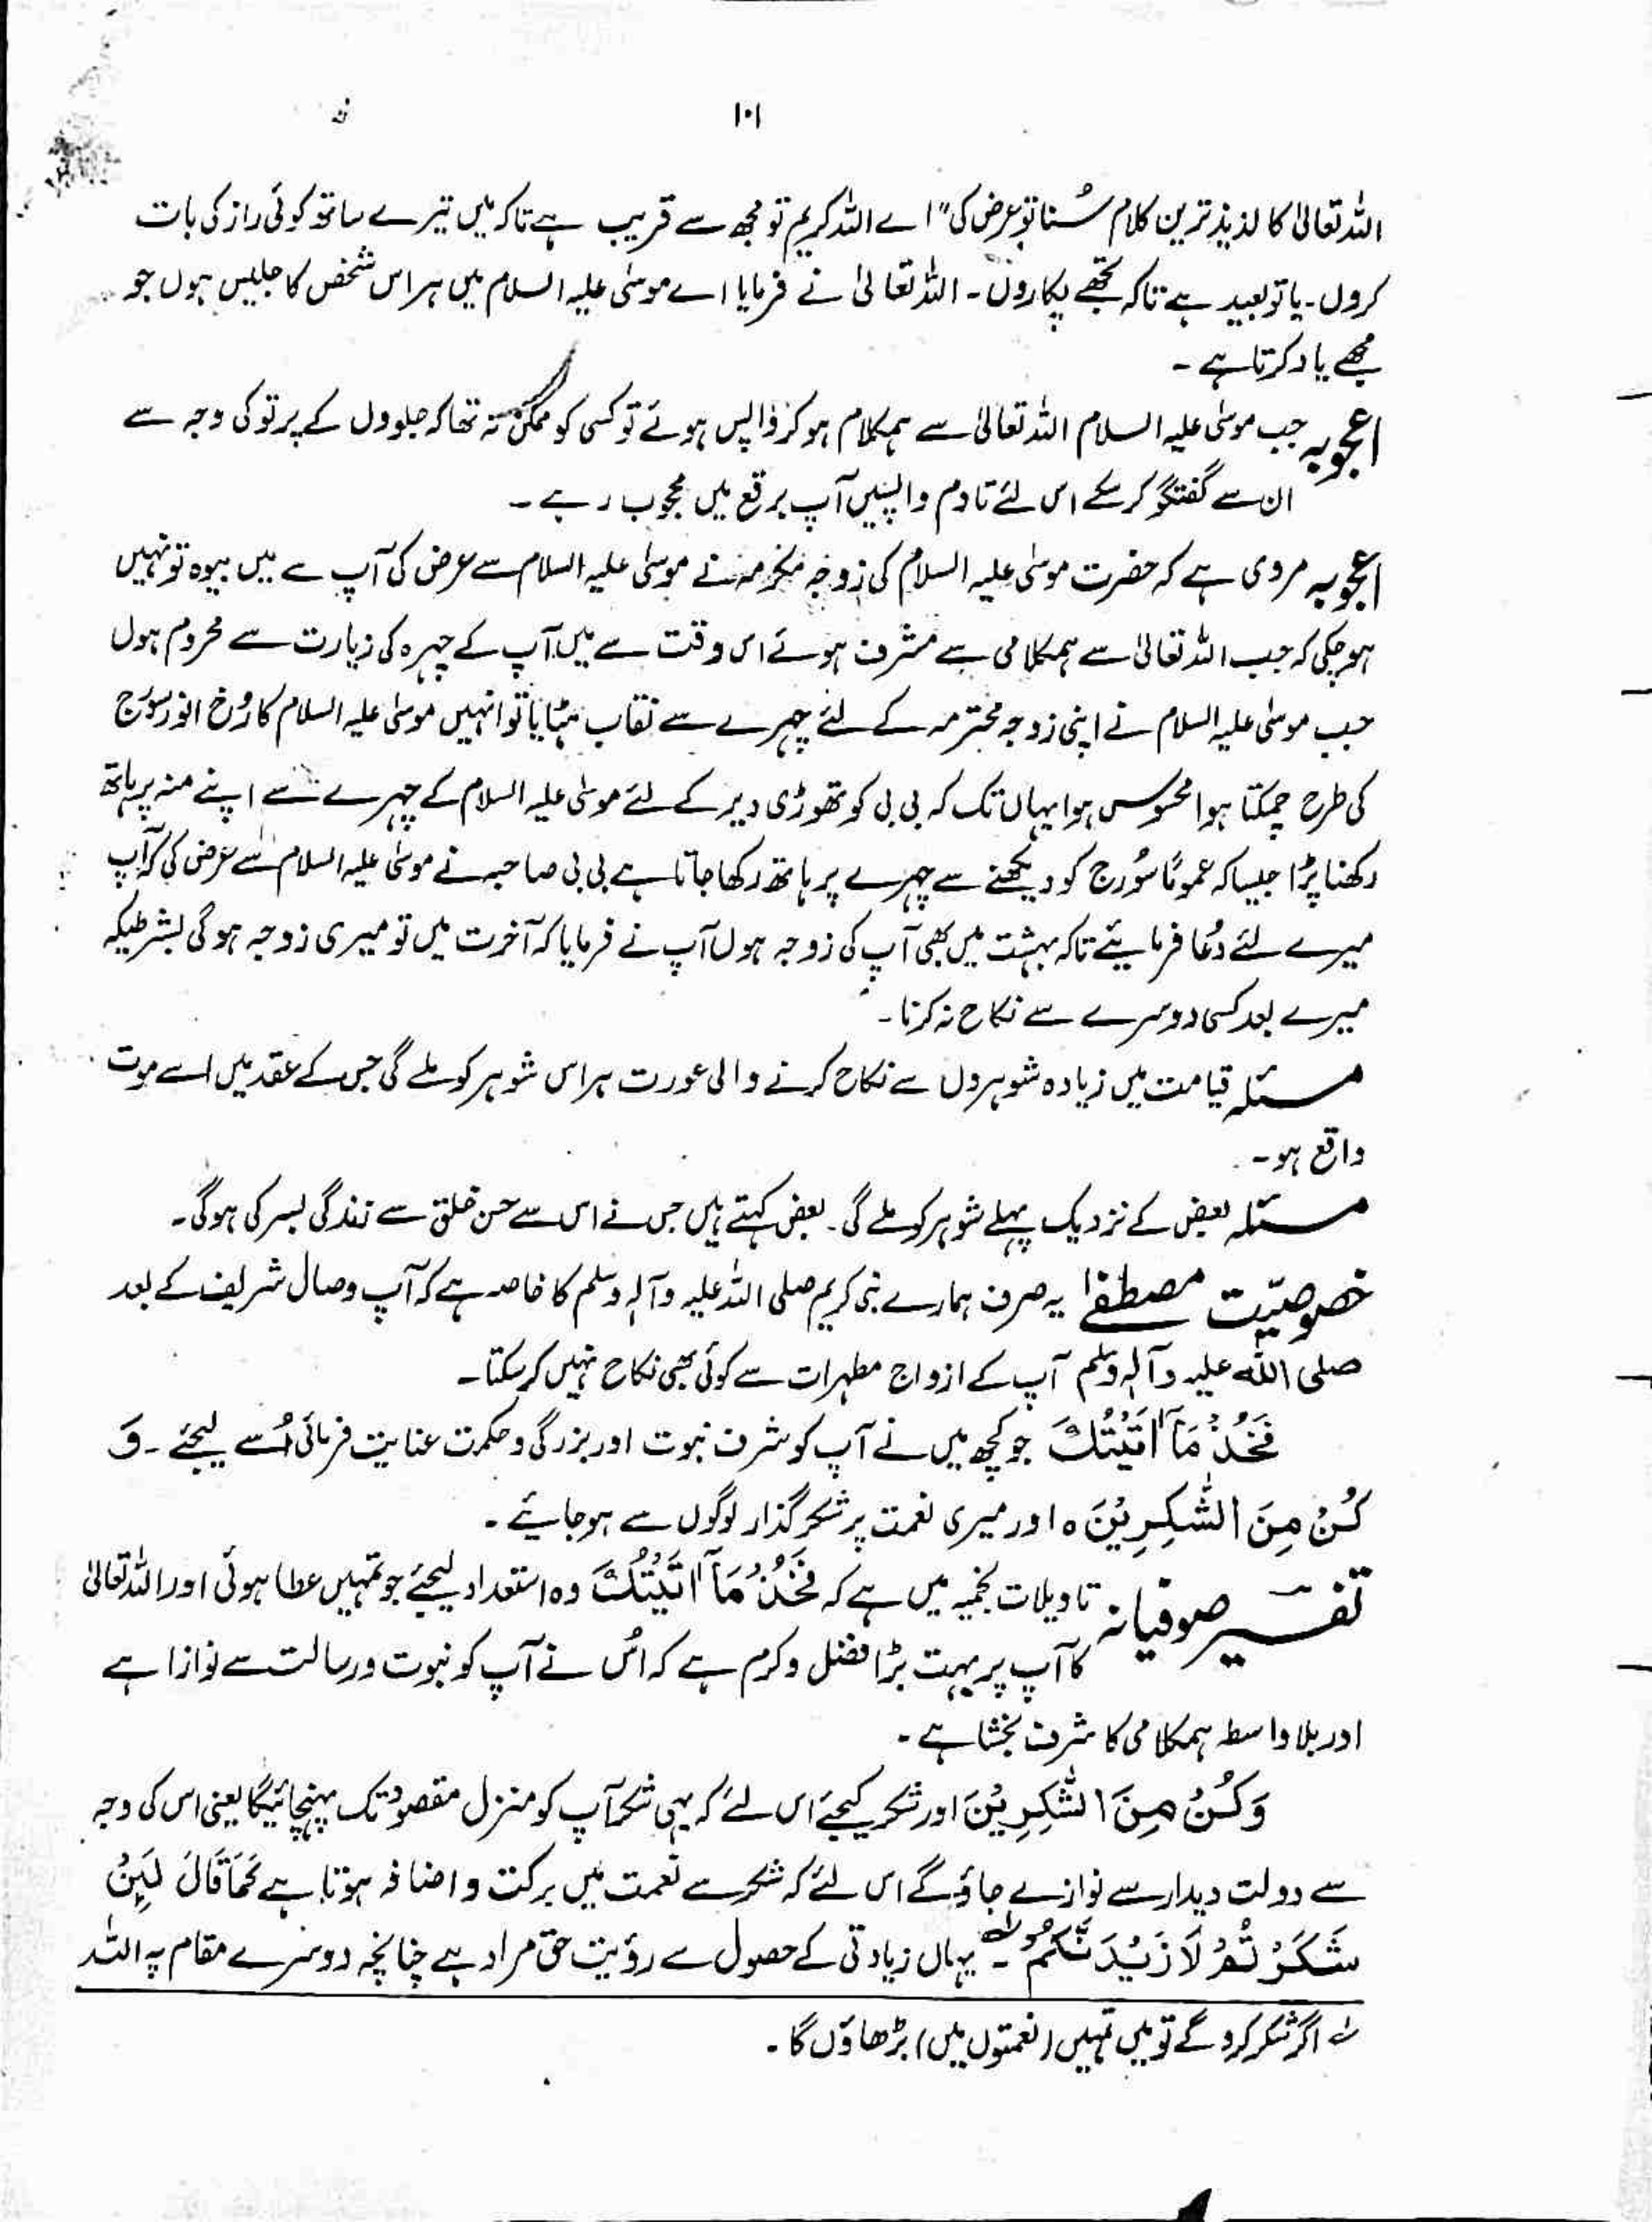 ۱۰۱
اللہ تعالیٰ کا لذیذ ترین کلام سُنا تو عرض کی" اے اللہ کریم تو مجھ سے قریب ہے تاکہ میں تیرے ساتھ کوئی راز کی بات
کروں۔ یا تو بعید ہے تاکہ تجھے پکاروں۔ اللہ تعالیٰ نے فرمایا اے موسٰی علیہ السلام میں ہر اس شخص کا جلیس ہوں جو
مجھے یاد کرتا ہے ۔
اعجوبہ جب موسٰی علیہ السلام اللہ تعالیٰ سے ہمکلام ہو کر واپس ہوئے تو کسی کو ممکن نہ تھا کہ جلووں کے پرتو کی وجہ سے
ان سے گفتگو کر سکے اس لئے تا دم واپسیں آپ برقع میں محجوب رہے ۔
اعجوبہ مروی ہے کہ حضرت موسٰی علیہ السلام کی زوجہ مکرمہ نے موسٰی علیہ السلام سے عرض کی آپ سے میں بیوہ تو نہیں
ہو چکی کہ جب اللہ تعالیٰ سے ہمکلامی سے مشرف ہوئے اس وقت سے میں آپ کے چہرہ کی زیارت سے محروم ہوں
جب موسٰی علیہ السلام نے اپنی زوجہ محترمہ کے لئے چہرے سے نقاب ہٹایا تو انہیں موسٰی علیہ السلام کا رُخ انور سورج
کی طرح چمکتا ہوا محسوس ہوا یہاں تک کہ بی بی کو تھوڑی دیر کے لئے موسٰی علیہ السلام کے چہرے سے اپنے منہ پر ہاتھ
رکھنا پڑا جیسا کہ عموماً سُورج کو دیکھنے سے چہرے پر ہاتھ رکھا جاتا ہے بی بی صاحبہ نے موسٰی علیہ السلام سے عرض کی کہ آپ
میرے لئے دُعا فرمایئے تاکہ بہشت میں بھی آپ کی زوجہ ہوں آپ نے فرمایا کہ آخرت میں تو میری زوجہ ہو گی بشرطیکہ
میرے بعد کسی دوسرے سے نکاح نہ کرنا ۔
مسئلہ قیامت میں زیادہ شوہروں سے نکاح کرنے والی عورت ہر اس شوہر کو ملے گی جس کے عقد میں اسے موت
واقع ہو ۔
مسئلہ بعض کے نزدیک پہلے شوہر کو ملے گی ۔ بعض کہتے ہیں جس نے اس سے حسن خلق سے زندگی بسر کی ہوگی ۔
خصوصیّت مصطفےٰ یہ صرف ہمارے نبی کریم صلی اللہ علیہ وآلہ وسلم کا خاصہ ہے کہ آپ وصال شریف کے بعد
صلی اللہ علیہ وآلہ وسلم آپ کے ازواج مطہرات سے کوئی بھی نکاح نہیں کر سکتا ۔
فَخُذْ مَآ اٰتَیْتُکَ جو کچھ میں نے آپ کو شرف نبوت اور بزرگی و حکمت عنایت فرمائی اُسے لیجئے ۔ وَ
کُنْ مِنَ الشّٰکِرِیْنَ ہ اور میری نعمت پر شکر گذار لوگوں سے ہو جایئے ۔
تفسیر صوفیانہ تاویلات نجمیہ میں ہے کہ فَخُذْ مَآ اٰتَیْتُکَ وہ استعداد لیجئے جو تمہیں عطا ہوئی اور اللہ تعالیٰ
کا آپ پر بہت بڑا فضل و کرم ہے کہ اُس نے آپ کو نبوت و رسالت سے نوازا ہے
اور بلا واسطہ ہمکلامی کا شرف بخشا ہے ۔
وَکُنْ مِنَ الشّٰکِرِیْنَ اور شکر کیجئے اس لئے کہ یہی شکر آپ کو منزل مقصود تک پہنچائیگا یعنی اس کی وجہ
سے دولت دیدار سے نوازے جاؤ گے اس لئے کہ شکر سے نعمت میں برکت و اضافہ ہوتا ہے کَمَا قَالَ لَئِنْ
شَکَرْتُمْ لَاَزِیْدَنَّکُمْ ؎ ۔ یہاں زیادتی کے حصول سے رؤیت حق مراد ہے چنانچہ دوسرے مقام پہ اللہ
؎ اگر شکر کرو گے تو میں تمہیں (نعمتوں میں) بڑھاؤں گا ۔